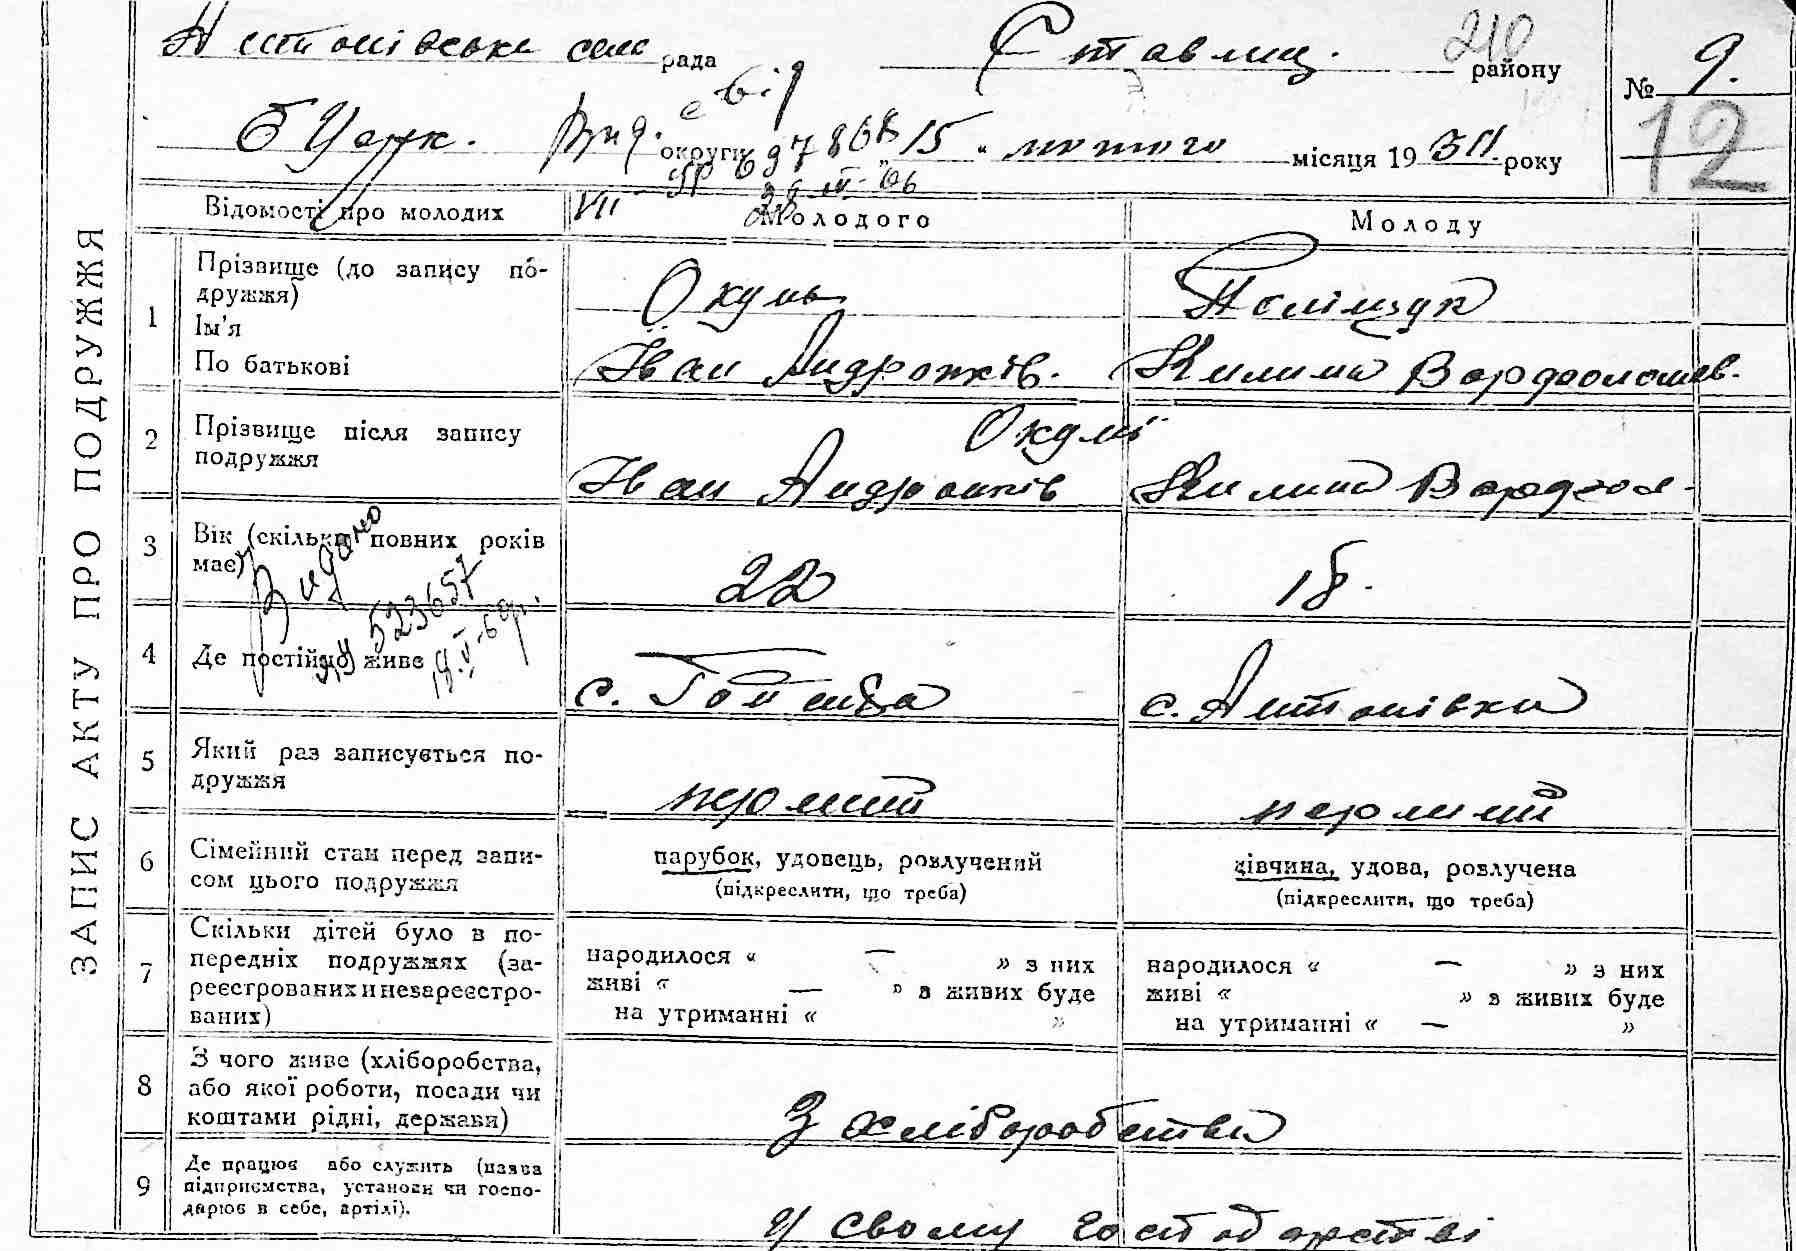 Антонівська сіль рада Ставищ. району 210 № 9.
Б Церк. округи "15" лютого місяця 1930 року 12
Вид. є від
697868
VII
ЗАПИС АКТУ ПРО ПОДРУЖЖЯ
Відомості про молодих Молодого Молоду
1 Прізвище (до запису по-
дружжя) Окунь Поліщук
Ім'я
По батькові Іван Андронків. Килина Вардфоломєв.
2 Прізвище після запису Окунь
подружжя Іван Андронків Килина Вардфол.
3 Вік (скільки повних років
має) 22 18.
Видано
523657
4 Де постійно живе с. Гостивка с. Антонівка
5 Який раз записується по-
дружжя перший перший
6 Сімейний стан перед запи- парубок, удовець, розлучений дівчина, удова, розлучена
сом цього подружжя (підкреслити, що треба) (підкреслити, що треба)
7 Скільки дітей було в по-
передніх подружжях (за- народилося « — » з них народилося « — » з них
реєстрованих и незареєстро- живі « — » з живих буде живі « » з живих буде
ваних) на утриманні « » на утриманні « — »
8 З чого живе (хліборобства,
або якої роботи, посади чи
коштами рідні, держави) З хліборобства
9 Де працює або служить (назва
підприємства, установи чи госпо-
дарює в себе, артілі). У свому господарстві